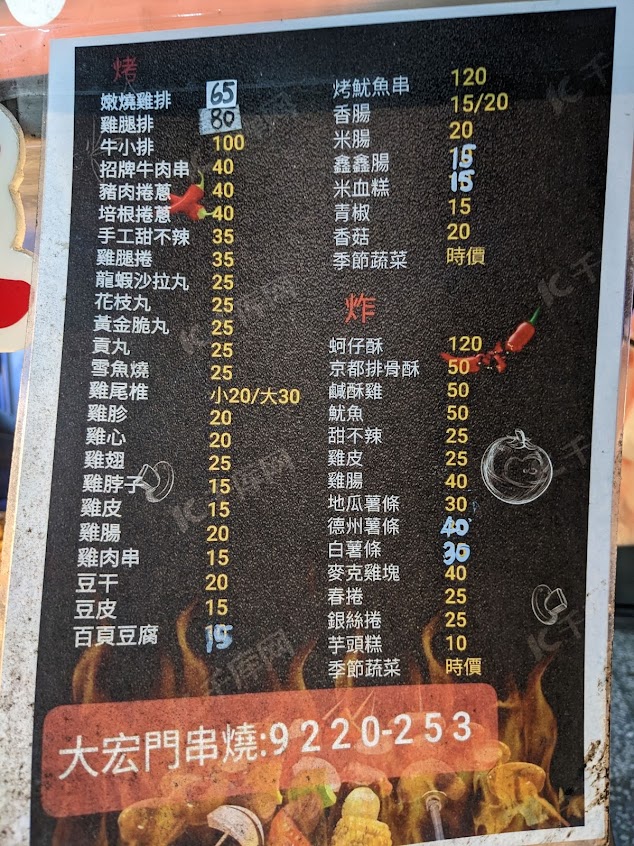 烤
嫩燒雞排 65
雞腿排 80
牛小排 100
招牌牛肉串 40
豬肉捲蔥 40
培根捲蔥 40
手工甜不辣 35
雞腿捲 35
龍蝦沙拉丸 25
花枝丸 25
黃金脆丸 25
貢丸 25
雪魚燒 25
雞尾椎 小20/大30
雞胗 20
雞心 20
雞翅 25
雞脖子 15
雞皮 15
雞腸 20
雞肉串 15
豆干 20
豆皮 15
百頁豆腐 15
烤魷魚串 120
香腸 15/20
米腸 20
鑫鑫腸 15
米血糕 15
青椒 15
香菇 20
季節蔬菜 時價
炸
蚵仔酥 120
京都排骨酥 50
鹹酥雞 50
魷魚 50
甜不辣 25
雞皮 25
雞腸 40
地瓜薯條 30
德州薯條 40
白薯條 30
麥克雞塊 40
春捲 25
銀絲捲 25
芋頭糕 10
季節蔬菜 時價
大宏門串燒:9220-253